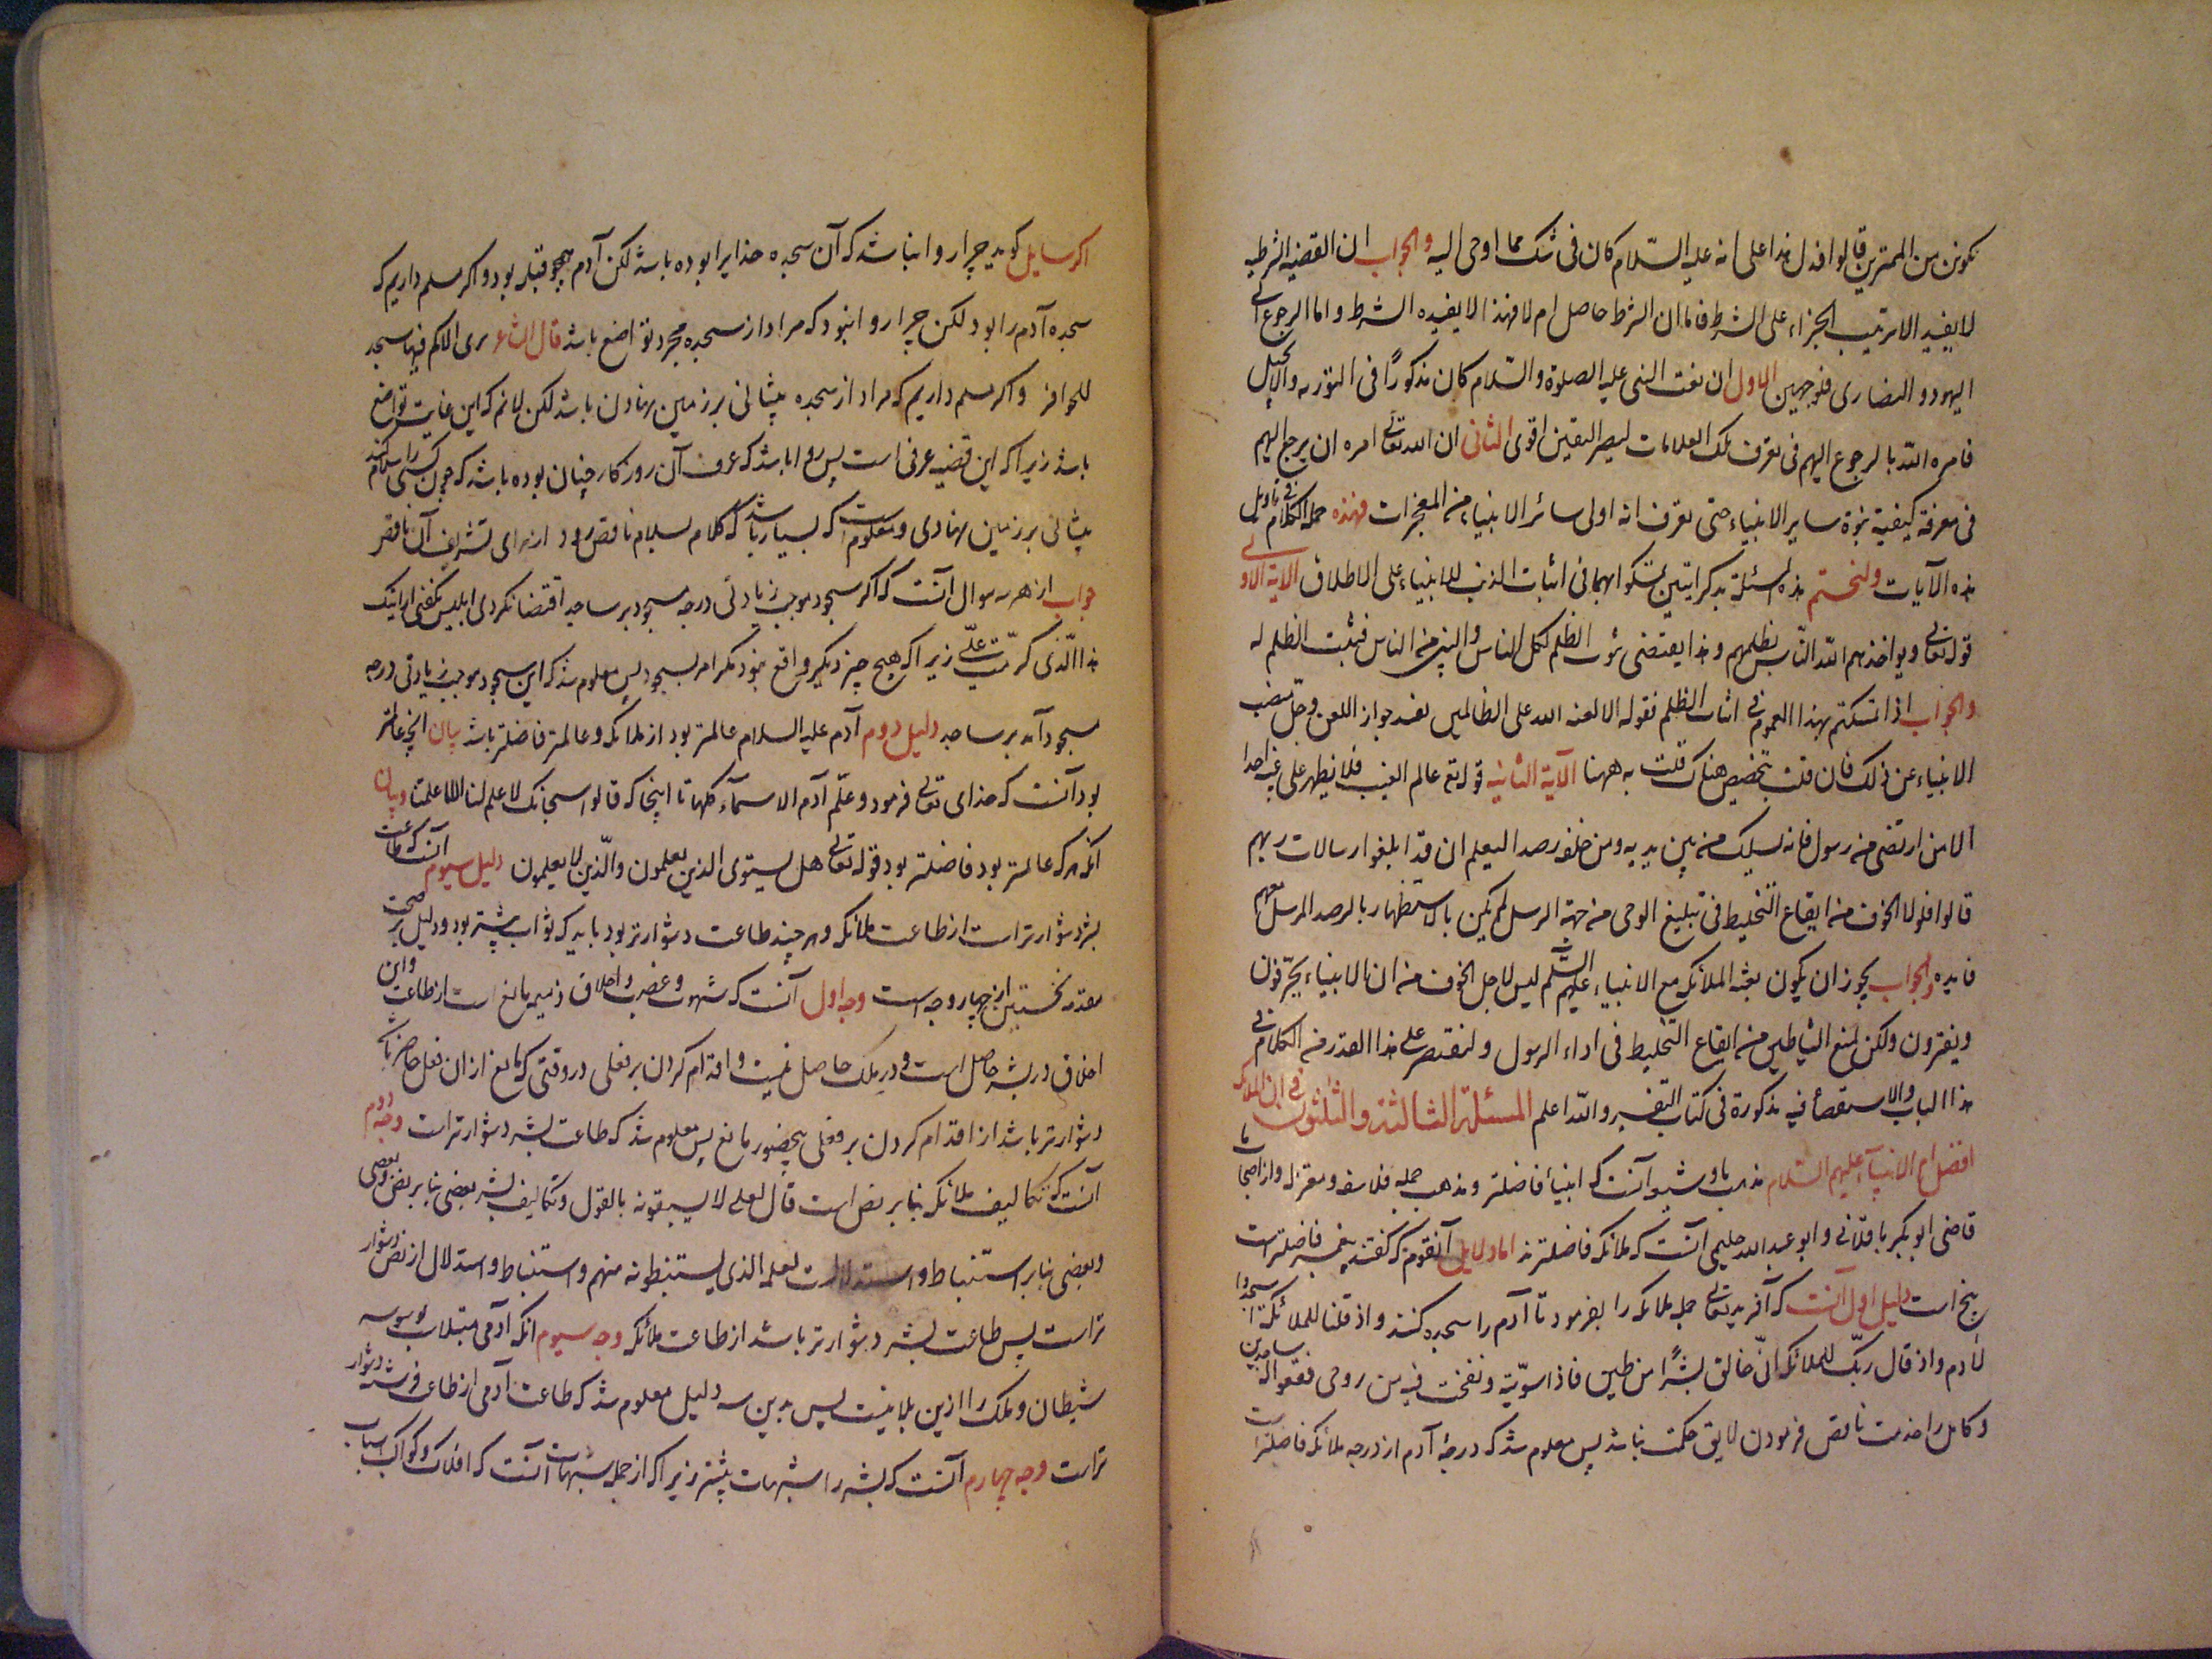 تكونن من الممترين قالوا فدل هذا على انه عليه السّلام كان فى شك مما اوحى اليه والجواب ان القضيه الشرطيه
لا يفيد الا ترتيب الجزاء على الشرط فاما ان الشرط حاصل ام لا فهذا لا يفيده الشرط واما الرجوع الى
اليهود والنصارى فلوجهين الاول ان نعت النبى عليه الصلوة والسّلام كان مذكورًا فى التورية والانجيل
فامره الله بالرجوع اليهم فى تعرف تلك العلامات ليصير اليقين اقوى الثانى ان الله تعالى امره ان يرجع اليهم
فى معرفة كيفية نبوة ساير الانبياء حتى يعرف انه اولى سائر الانبياء من المعجزات فهذه جملة الكلام فى تأويل
هذه الآيات ولنختم هذه المسئلة بذكر ايتين تمسكوا بهما فى اثبات الذنب للانبياء على الاطلاق الآية الاولى
قوله تعالى ويواخذهم الله النّاس بظلمهم وهذا يقتضى ثبوت الظلم لكل الناس والنبى من الناس فيثبت الظلم له
والجواب اذا تمسكتم بهذا العموم فى اثبات الظلم فقوله الا لعنة الله على الظالمين يفيد جواز اللعن وجل منصب
الانبياء عن ذلك فان قلت بتخصيص هناك قلت به ههنا الآية الثانيه قوله تع عالم الغيب فلا يظهر على غيبه احدا
الا من ارتضى من رسول فانه يسلك من بين يديه ومن خلفه رصدا ليعلم ان قد ابلغوا رسالات ربهم
قالوا فلولا الخوف من ايقاع التخليط فى تبليغ الوحى من جهة الرسل لم يكن بالاستظهار بالرصد المرسل معهم
فايده والجواب يجوز ان يكون بعثه الملائكه مع الانبياء عليهم السّلم ليس لاجل الخوف من ان الانبياء يحرّفون
ويفترون ولكن لمنع الشياطين من ايقاع التخليط فى اداء الرسول ولنقتصر على هذا القدر من الكلام فى
هذا الباب والاستقصاء فيه مذكورة فى كتاب التفسير والله اعلم المسئلة الثالثة والثلثون فى ان الملائكه
افضل ام الانبيآء عليهم السّلام مذهب ما و شيعه آنست كه انبيأ فاضلتر ومذهب جمله فلاسفه ومعتزله واز اصحاب ما
قاضى ابو بكر باقلّانى وابو عبد الله حليمى آنست كه ملائكه فاضلترند اما دلايل آنقوم كه گفتند پيغمبر فاضلتر است
پنج است دليل اول آنست كه آفريدگار تعالى جمله ملائكه را بفرمود تا آدم را سجده كنند واذ قلنا للملائكة اسجدوا
لآدم واذ قال ربّك للملائكة انّى خالق بشرًا من طين فاذا سوّيته ونفخت فيه من روحى فقعوا له ساجدين
وكامل را خدمت ناقص فرمودن لايق حكمت نباشد پس معلوم شد كه درجۀ آدم از درجه ملائكه فاضلتر است
اگر سايل گويد چرا روا نباشد كه آن سجده خدايرا بوده باشد لكن آدم همچو قبله بود واگر مسلم داريم كه
سجده آدم را بود لكن چرا روا نبود كه مراد از سجده مجرد تواضع باشد قال الشاعر ترى الاكم فيها سجد
للحوافر واگر مسلم داريم كه مراد از سجده پيشانى بر زمين نهادن باشد لكن لانم كه اين غايت تواضع
باشد زيرا كه اين قضيه عرفى است پس روا باشد كه عرف آن روزگار چنان بوده باشد كه چون كسى را سلام كند
پيشانى بر زمين نهادى ومعلوم است كه بسيار باشد كه كلام سلام ناقص رود از براى تشريف آن ناقص
جواب از هر سه سوال آنست كه اگر سجود موجب زيادتى درجه مسجود بر ساجد اقتضا نكردى ابليس نگفتى ارايتك
هذا الّذى كرّمت علىّ زيرا كه هيچ چيز ديگر واقع نبود مگر امر بسجود پس معلوم شد كه اين سجود موجب زيادتى درجه
مسجود آمد بر ساجد دليل دوم آدم عليه السلام عالمتر بود از ملائكه وعالمتر فاضلتر باشد بيان آنچه عالمتر
بود آنست كه خداى تعالى فرمود وعلّم آدم الاسمآء كلها تا اينجا كه قالوا سبحانك لا علم لنا الا ما علمتنا وبيان
آنكه هر كه عالمتر بود فاضلتر بود قوله تعالى هل يستوى الذين يعلمون والّذين لا يعلمون دليل سيوم آنست كه طاعت
بشر دشوارتر است از طاعت ملائكه وهر چند طاعت دشوارتر بود بايد كه ثواب بيشتر بود ودليل بر صحت
مقدمه نخستين از چهار وجه است وجه اول آنست كه شهوت وغضب واخلاق ذميمه مانع است از طاعت واين
اخلاق در بشر حاصل است ودر ملك حاصل نيست واقدام كردن بر فعلى در وقتى كه مانع از ان فعل حاضر باشد
دشوارتر باشد از اقدام كردن بر فعلى بى حضور مانع پس معلوم شد كه طاعت بشر دشوارتر است وجه دوم
آنست كه تكاليف ملائكه بنا بر نص است قال تعالى لا يسبقونه بالقول وتكاليف بشر بعضى بنا بر نص
وبعضى بنا بر استنباط واستدلال است لعلمه الذى يستنبطونه منهم واستنباط واستدلال از نص دشوار
تر است پس طاعت بشر دشوارتر باشد از طاعت ملائكه وجه سيوم آنكه آدمى مبتلا بوسوسه
شيطان وملك را ازين بلا نيست پس بدين سه دليل معلوم شد كه طاعت آدمى از طاعت فرشته دشوار
تر است وجه چهارم آنست كه بشر را شبهات بيشتر زيرا كه از جمله شبهات آنست كه افلاك وكواكب اسباب